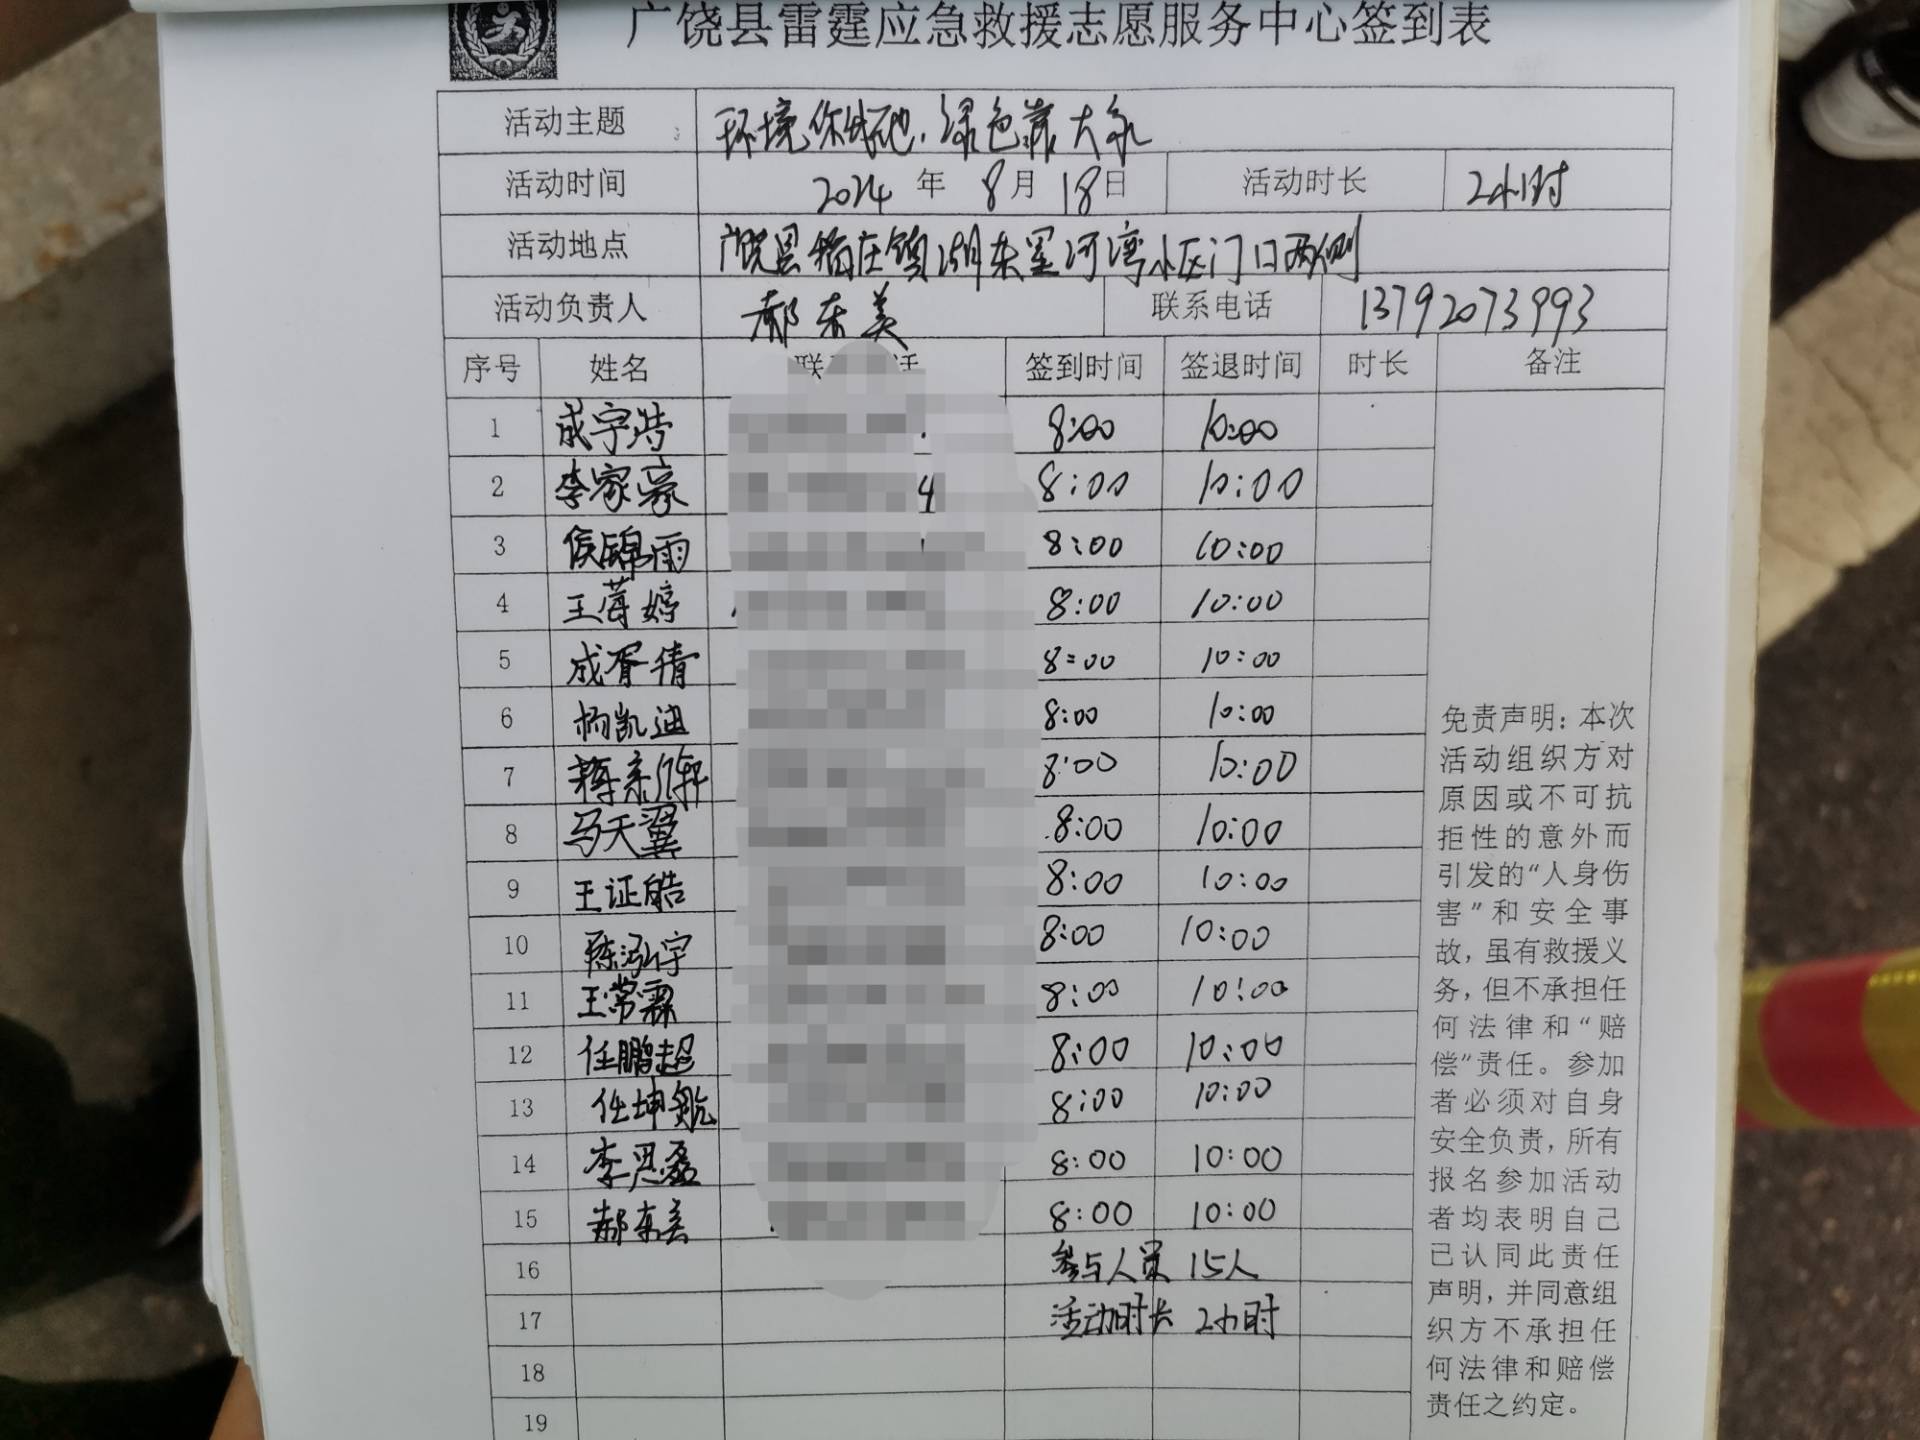 广饶县雷霆应急救援志愿服务中心签到表
活动主题 环境你我他,绿色靠大家
活动时间 2024年8月18日 活动时长 2小时
活动地点 广饶县稻庄镇湖东星河湾小区门口两侧
活动负责人 郝东美 联系电话 13792073993
序号 姓名 联 话 签到时间 签退时间 时长 备注
1 成宇浩 8:00 10:00
2 李家豪 4 8:00 10:00
3 侯锦雨 8:00 10:00
4 王婷 8:00 10:00
5 成胥倩 8:00 10:00
6 杨凯迪 8:00 10:00
7 8:00 10:00
8 马天翼 8:00 10:00
9 王证皓 8:00 10:00
10 陈泓宇 8:00 10:00
11 王常霖 8:00 10:00
12 任鹏超 8:00 10:00
13 任坤航 8:00 10:00
14 李思磊 8:00 10:00
15 郝东美 8:00 10:00
16 参与人员 15人
17 活动时长 2小时
18
19
免责声明:本次
活动组织方对
原因或不可抗
拒性的意外而
引发的“人身伤
害”和安全事
故,虽有救援义
务,但不承担任
何法律和“赔
偿”责任。参加
者必须对自身
安全负责,所有
报名参加活动
者均表明自己
已认同此责任
声明,并同意组
织方不承担任
何法律和赔偿
责任之约定。